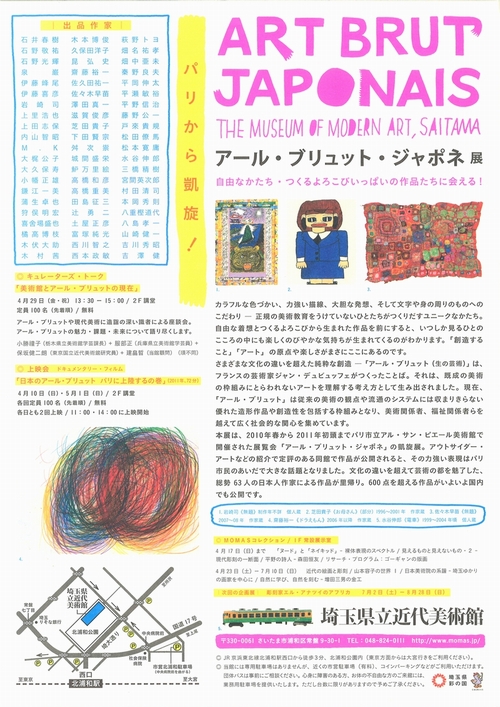 ART BRUT
JAPONAIS
THE MUSEUM OF MODERN ART, SAITAMA
アール・ブリュット・ジャポネ 展
自由なかたち・つくるよろこびいっぱいの作品たちに会える！
パリから凱旋！
出品作家
石井春樹 木本博俊 萩野トヨ
石野敬祐 久保田洋子 畑名祐孝
石野光輝 昆弘史 畑中亜未
泉巌 齋藤裕一 秦野良夫
伊藤峰尾 佐久田祐一 平岡伸太
伊藤喜彦 佐々木早苗 平瀬敏裕
岩崎司 澤田真一 平野信治
上里浩也 滋賀俊彦 藤野公一
上田志保 芝田貴子 戸來貴規
内山智昭 下田賢宗 松田僚馬
M.K 舛次崇 松本寛庸
大梶公子 城間盛栄 水谷伸郎
大久保寿 新万里絵 三橋精樹
小幡正雄 高橋和彦 宮間英次郎
鎌江一美 高橋重美 村田清司
蒲生卓也 田島征三 本岡秀則
狩俣明宏 辻勇二 八重樫道代
喜舎場盛也 土屋正彦 八島孝一
橘高博枝 富塚純光 山崎健一
木伏大助 西川智之 吉川秀昭
木村茜 西本政敏 吉澤健
○ キュレーターズ・トーク
「美術館とアール・ブリュットの現在」
4月29日（金・祝） 13：30 − 15：00 / 2F講堂
定員100名（先着順）/ 無料
アール・ブリュットや現代美術に造詣の深い識者による座談会。
アール・ブリュットの魅力・課題・未来について語り尽くします。
小勝禮子（栃木県立美術館学芸課長）＋ 服部正（兵庫県立美術館学芸員）＋
保坂健二朗（東京国立近代美術館研究員）＋ 建畠晢（当館館長）
○ 上映会 ドキュメンタリー・フィルム
「日本のアール・ブリュット パリに上陸するの巻」
4月10日（日）・5月1日（日） / 2F講堂
各回定員100名（先着順）/ 無料
各日とも2回上映 / 11：00・14：00に上映開始
カラフルな色づかい、力強い描線、大胆な発想、そして文字や身の周りのものへの
こだわり ― 正規の美術教育をうけていないひとたちがつくりだすユニークなかたち。
自由な着想とつくるよろこびから生まれた作品を前にすると、いつしか見るひとの
こころの中にも楽しくのびやかな気持ちが生まれてくるのがわかります。「創造する
こと」「アート」の原点や楽しさがまさにここにあるのです。
さまざまな文化の違いを超えた純粋な創造 ―「アール・ブリュット（生の芸術）」は、
フランスの芸術家ジャン・デュビュッフェがつくったことば。それは、既成の美術
の枠組みにとらわれないアートを理解する考え方として生み出されました。現在、
「アール・ブリュット」は従来の美術の観点や流通のシステムには収まりきらない
優れた造形作品や創造性を包括する枠組みとなり、美術関係者、福祉関係者らを
超えて広く社会的な関心を集めています。
本展は、2010年春から2011年初頭までパリ市立アル・サン・ピエール美術館で
開催された展覧会「アール・ブリュット・ジャポネ」の凱旋展。アウトサイダー・
アートなどの紹介で定評のある同館で作品が公開されると、その力強い表現はパリ
市民のあいだで大きな話題となりました。文化の違いを超えて芸術の都を魅了した、
総勢63人の日本人作家による作品が里帰り。600点を超える作品がいよいよ国内
でも公開です。
○ MOMASコレクション / 1F常設展示室
4月17日（日）まで 「ヌード」と「ネイキッド」− 裸体表現のスペクトル / 見えるものと見えないもの・2 −
現代彫刻の一断面 / 平野の詩人・森田恒友 / リサーチ・プログラム：ゴーギャンの版画
4月23日（土）〜7月10日（日） 近代の絵画と彫刻 / 山本容子の世界Ⅰ / 日本美術院の系譜 − 埼玉ゆかり
の画家を中心に / 自然に学び、自然を刻む - 増田三男の金工
次回の企画展 彫刻家エル・アナツイのアフリカ 7月2日（土）− 8月28日（日）
埼玉県立近代美術館
〒330-0061 さいたま市浦和区常盤9-30-1 TEL：048-824-0111 http://www.momas.jp/
○ JR京浜東北線北浦和駅西口から徒歩3分、北浦和公園内
埼玉県立
近代美術館
北浦和公園
国道17号
西口
北浦和駅
至東京
至大宮
埼玉県
彩の国